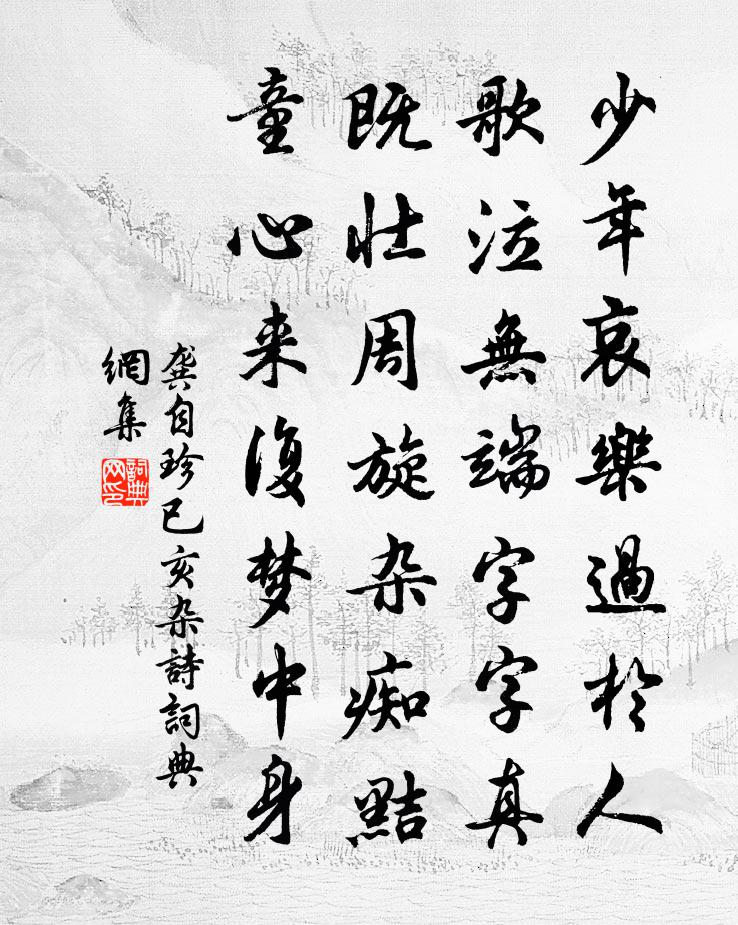 少年哀樂過於人
歌泣無端字字真
既壮周旋杂痴黠
童心来復梦中身
龚自珍己亥杂詩詞典
網集
詞典
网印